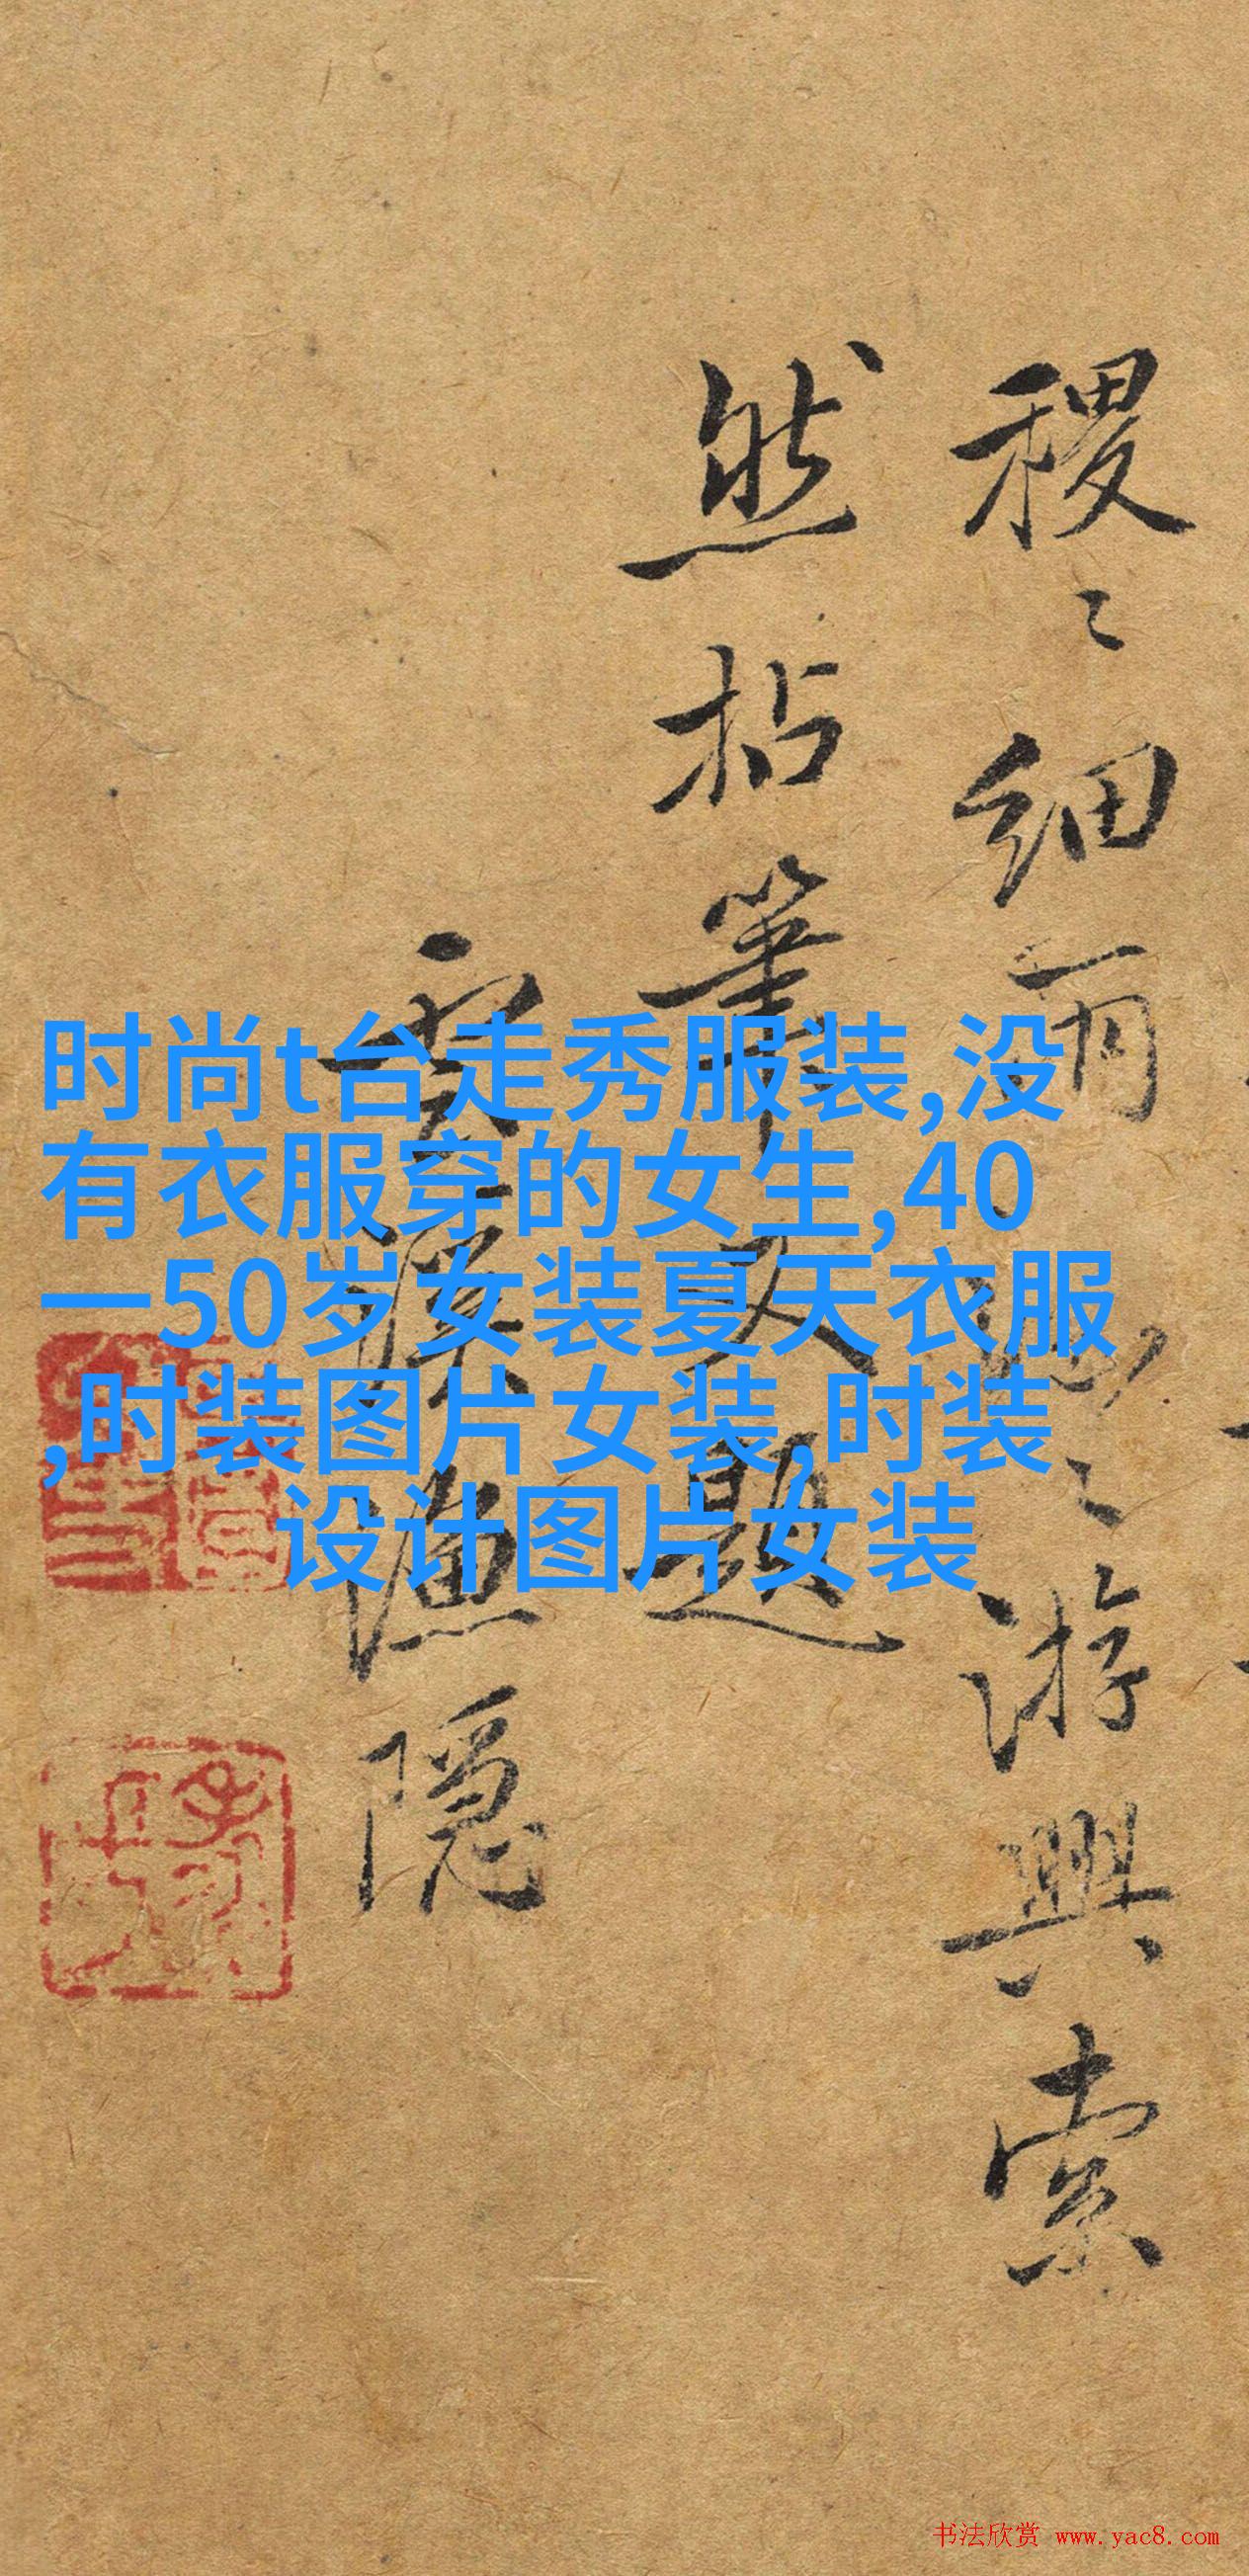 稷〻細雨
〻游興索
然拈筆又題
雲漢漁隱
时尚t台走秀服装,没
有衣服穿的女生,40
一50岁女装夏天衣服
,时装图片女装,时装
设计图片女装
书法欣赏 www.yac8.com